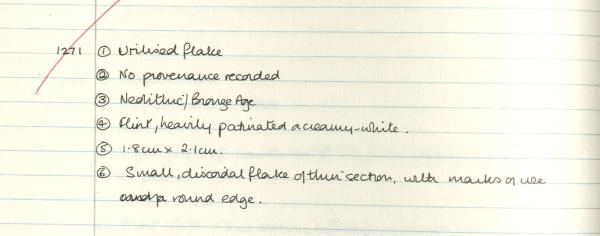 1271 ① Utilised flake
② No provenance recorded
③ Neolithic/Bronze Age
④ Flint, heavily patinated a creamy-white.
⑤ 1.8cm x 2.1cm.
⑥ Small, discoidal flake of thin section, with marks of use
round edge.